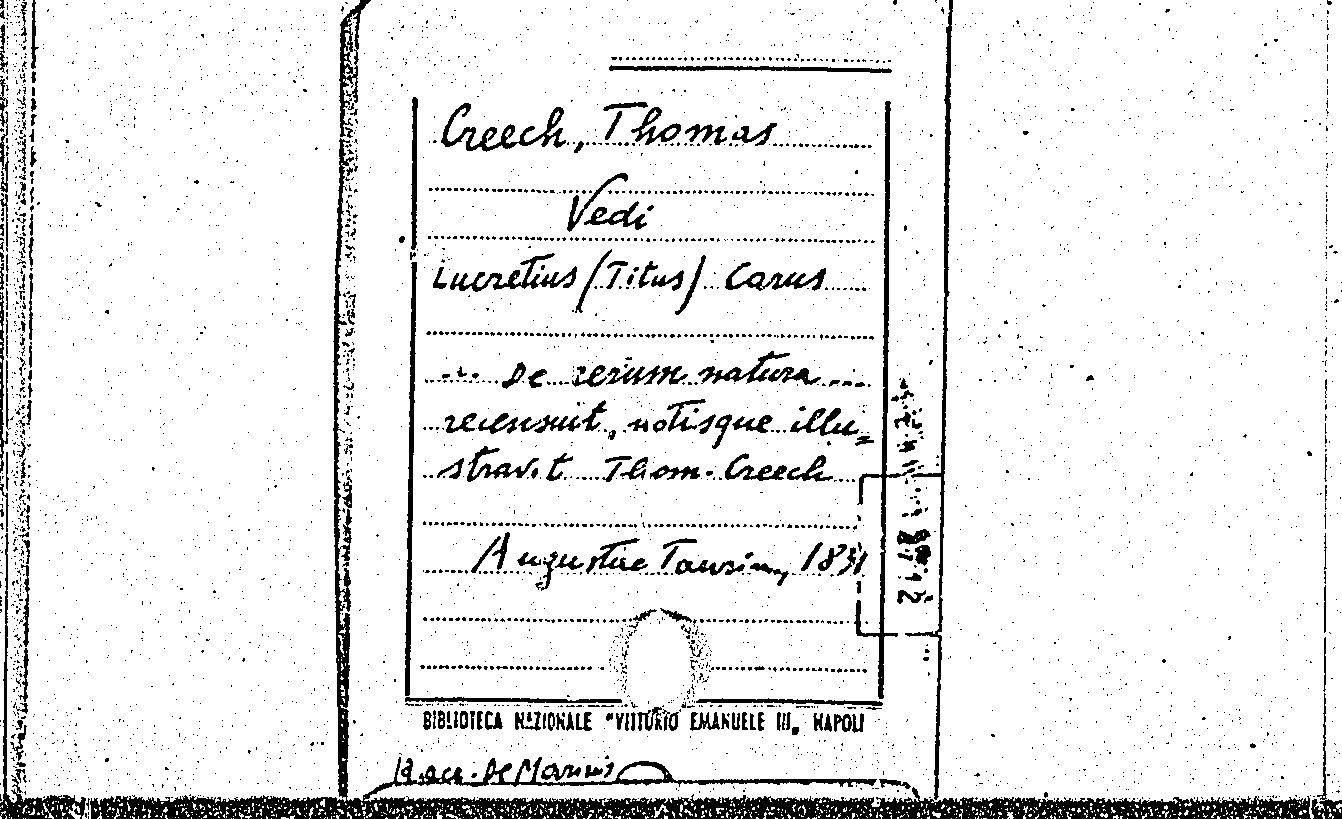 Creech, Thomas
Vedi
Lucretius (Titus) Carus
... De rerum natura ...
recensuit, notisque illu=
stravit Thom. Creech
Augustae Taurin., 1831
BIBLIOTECA NAZIONALE "VITTORIO EMANUELE III„ NAPOLI
Racc. De Marinis